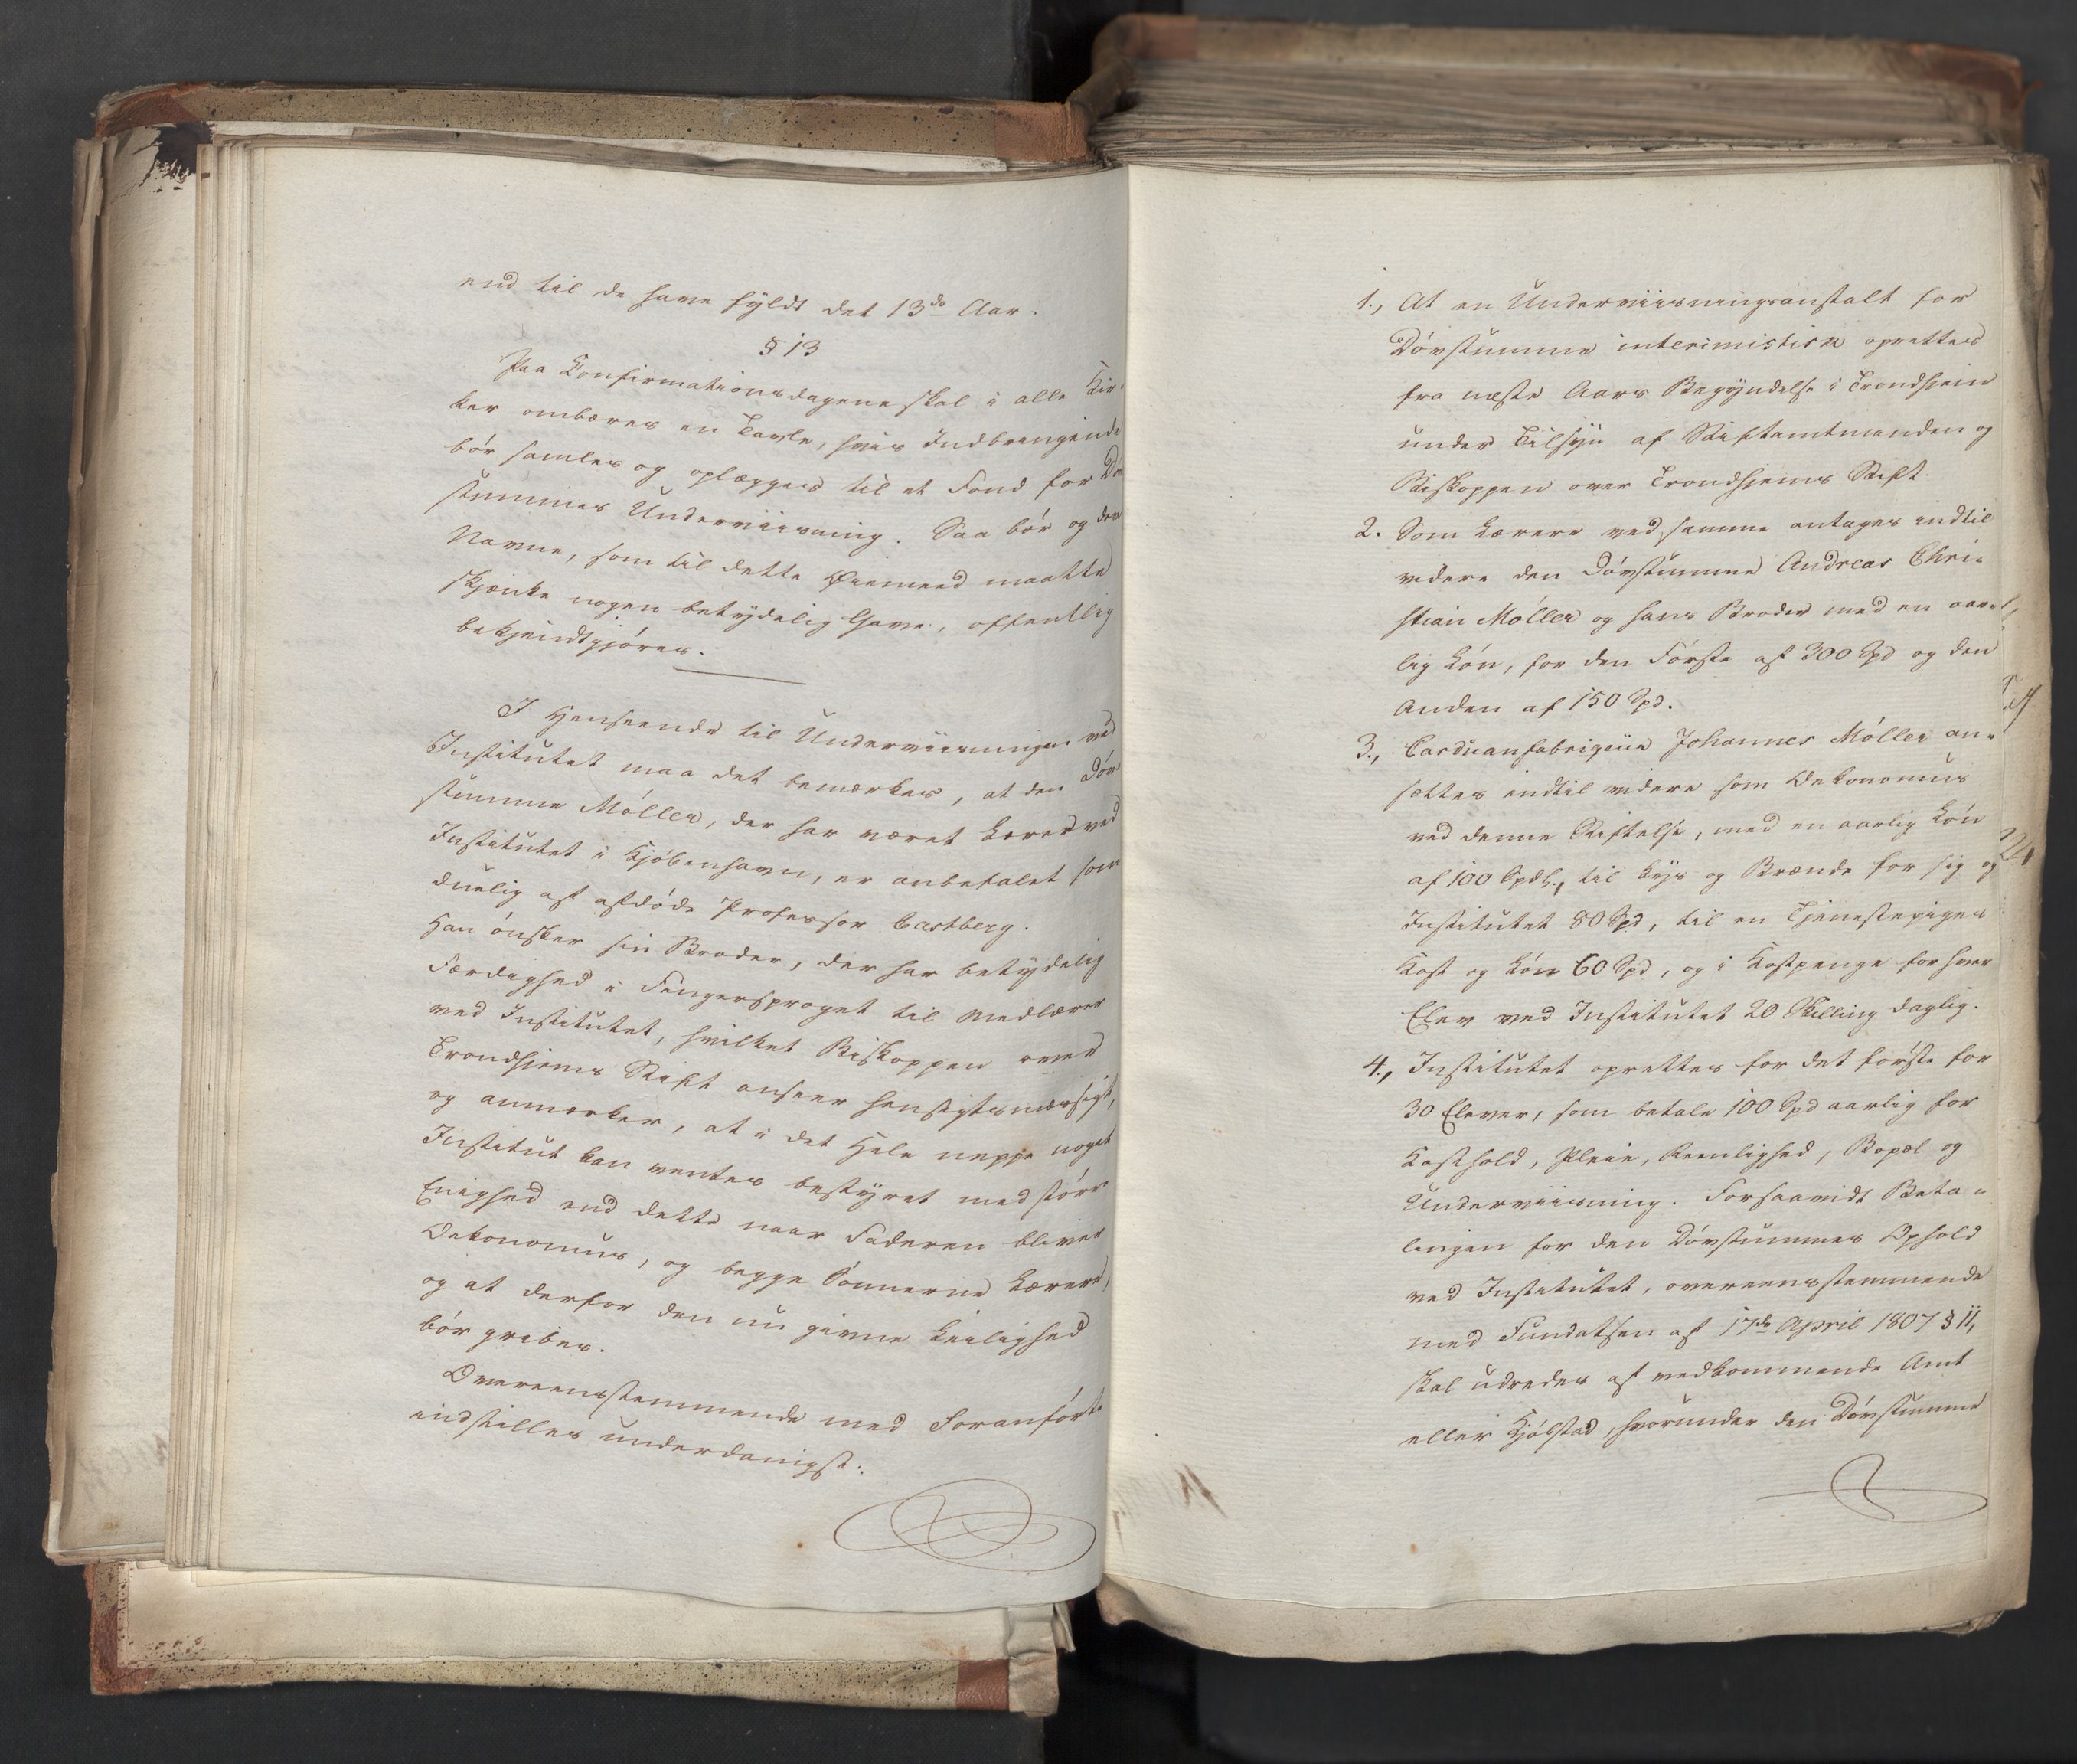 end til de have fyldt det 13de Aar.
§ 13
Paa Confirmationsdagene skal i alle Kir-
ker ombæres en Tavle, hvis Indbringende
bör samles og oplægges til et Fond for Döv
stummes Underviisning. Saa bör og deres
Navne, som til dette Öiemeed maatte
skjænke nogen betydelig Gave, offentlig
bekjendtgjöres.
I Henseende til Underviisningen ved
Institutet maa det bemærkes, at den Döv-
stumme Möller, der har været Lærer ved
Institutet i Kjöbenhavn, er anbefalet som
duelig af afdöde Professor Castberg.
Han önsker sin Broder, der har betydelig
Færdighed i Fingersproget til Medlærer
ved Institutet, hvilket Biskoppen over
Trondhjems Stift anseer hensigtsmæssigt,
og anmærker, at i det Hele neppe noget
Institut kan ventes bestyret med störe
Enighed end dette naar Faderen bliver
Oekonomus, og begge Sönnerne Lærere,
og at derfor den nu givne Leilighed
bör gribes.
Overeensstemmende med Foranförte
indstilles underdanigst:
1., At en Underviisningsanstalt for
Dövstumme interimistisk oprettes
fra næste Aars Begyndelse i Trondhjem
under Tilsyn af Stiftamtmanden og
Biskoppen over Trondhjems Stift.
2. Som Lærere ved samme antages indtil
videre den Dövstumme Andreas Chri-
stian Möller og hans Broder med en aar-
lig Lön, for den Förste af 300 Spd og den
Anden af 150 Spd.
3., Carduanfabriqeur Johannes Möller an-
sættes indtil videre som Oekonomus
ved denne Stiftelse, med en aarlig Lön
af 100 Spdlr., til Lys og Brænde for sig og
Institutet 80 Spd, til en Tjenestepiges
Kost og Lön 60 Spd, og i Kostpenge for hver
Elev ved Institutet 20 Skilling daglig.
4., Institutet oprettes for det förste for
30 Elever, som betale 100 Spd aarlig for
Kosthold, Pleie, Reenlighed, Bopæl og
Underviisning. Forsaavidt Beta-
lingen for den Dövstummes Ophold
ved Institutet, overeensstemmende
med Fundatsen af 17de April 1807 § 11,
skal udredes af vedkommende Amt
eller Kjöbstad, hvorunder den Dövstumme